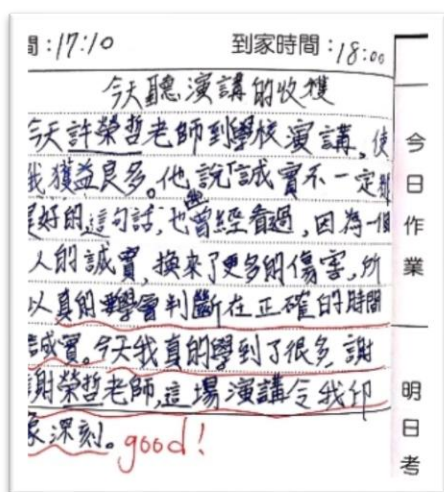 間:17:10 到家時間:18:00
今天聽演講的收穫
今天許榮哲老師到學校演講,使
我獲益良多。他說「誠實不一定都
是好的,這句話,也曾經看過,因為一個
人的誠實,換來了更多的傷害,所
以真的要學會判斷在正確的時間
誠實。今天我真的學到了很多謝
謝榮哲老師,這場演講令我印
象深刻。good!
今日作業
明日考